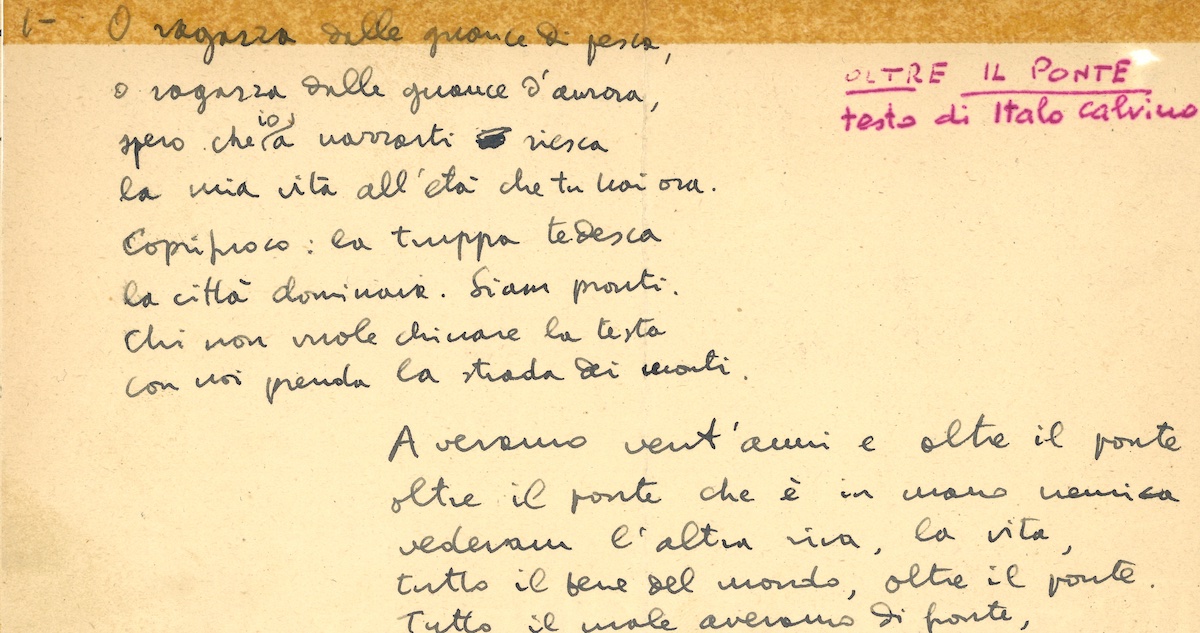 1- O ragazza dalle guance di pesca,
o ragazza dalle guance d'aurora,
spero che io a narrarti riesca
la mia vita all'età che tu hai ora.
Coprifuoco: la truppa tedesca
la città dominava. Siam pronti.
Chi non vuole chinare la testa
con noi prenda la strada dei monti.
OLTRE IL PONTE
testo di Italo Calvino
Avevamo vent'anni e oltre il ponte
oltre il ponte che è in mano nemica
vedevam l'altra riva, la vita,
tutto il bene del mondo, oltre il ponte.
Tutto il male avevamo di fronte,